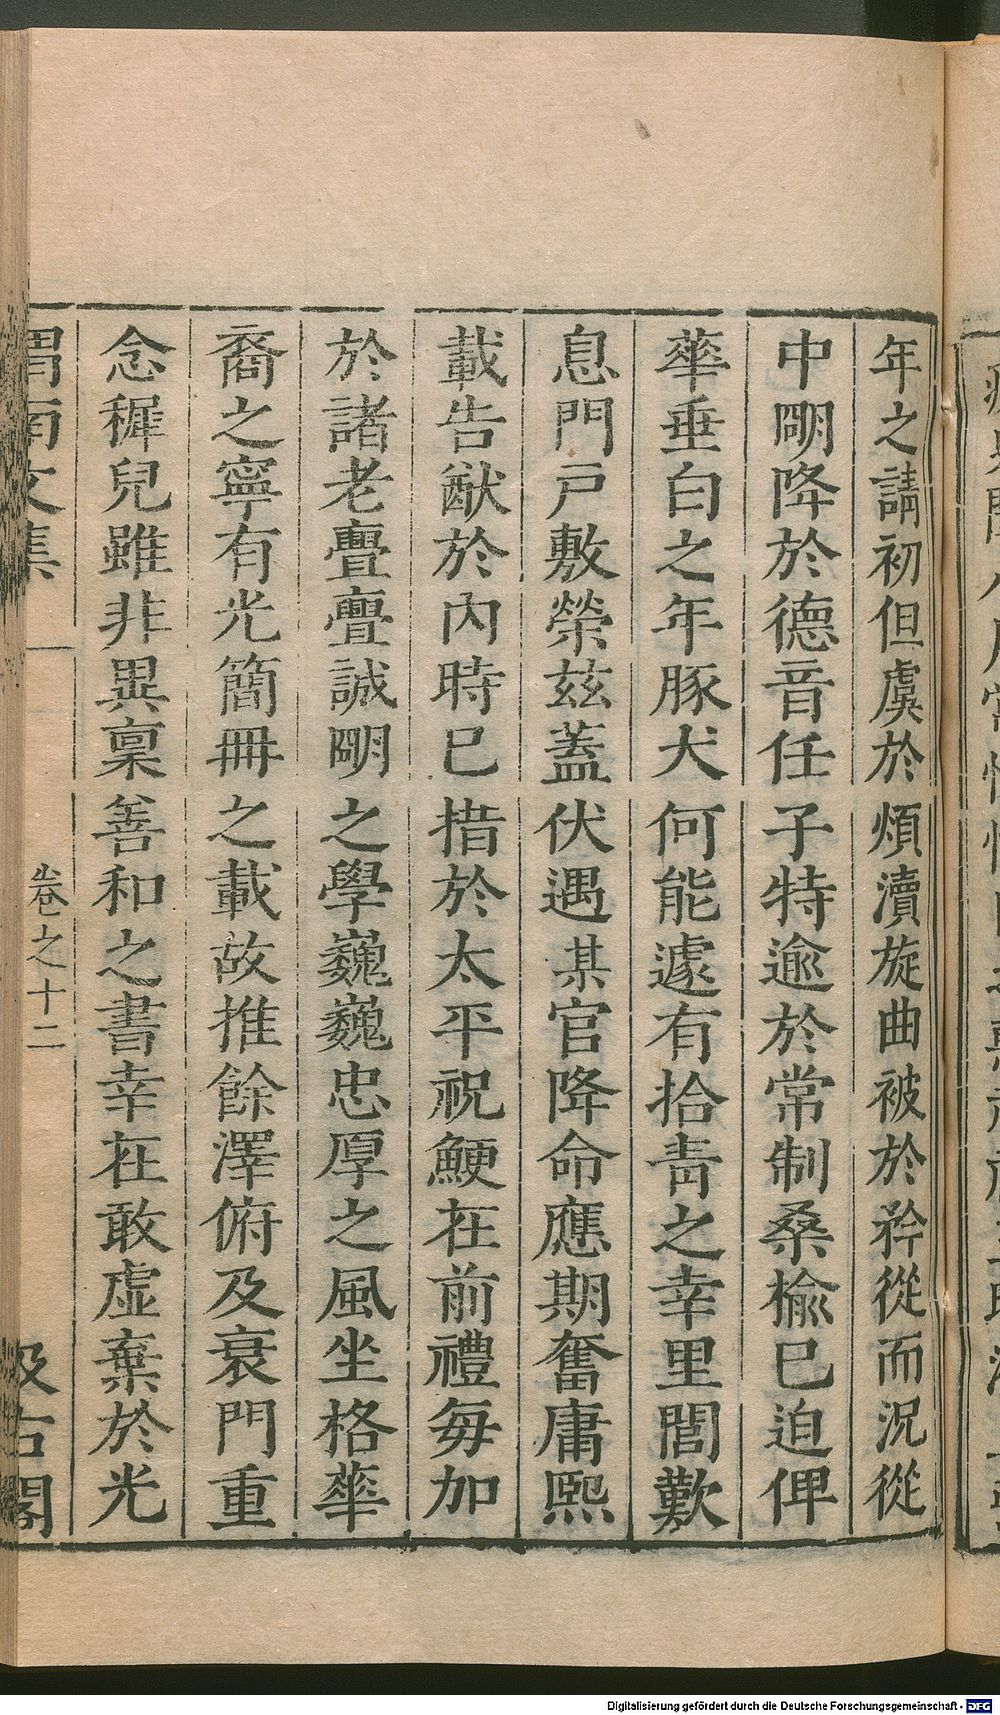 年之請初但虞於煩瀆旋曲被於矜從而況從
中朙降於德音任子特逾於常制桑榆已迫俾
華垂白之年豚犬何能遽有拾青之幸里閭歎
息門戸敷榮茲蓋伏遇某官降命應期奮庸熙
載告猷於內時已措於太平祝鯁在前禮每加
於諸老亹亹誠朙之學巍巍忠厚之風坐格華
裔之寧有光簡冊之載故推餘澤俯及衰門重
念穉兒雖非異稟善和之書幸在敢虛棄於光
渭南文集
卷之十二
汲古閣
Digitalisierung gefördert durch die Deutsche Forschungsgemeinschaft - DFG